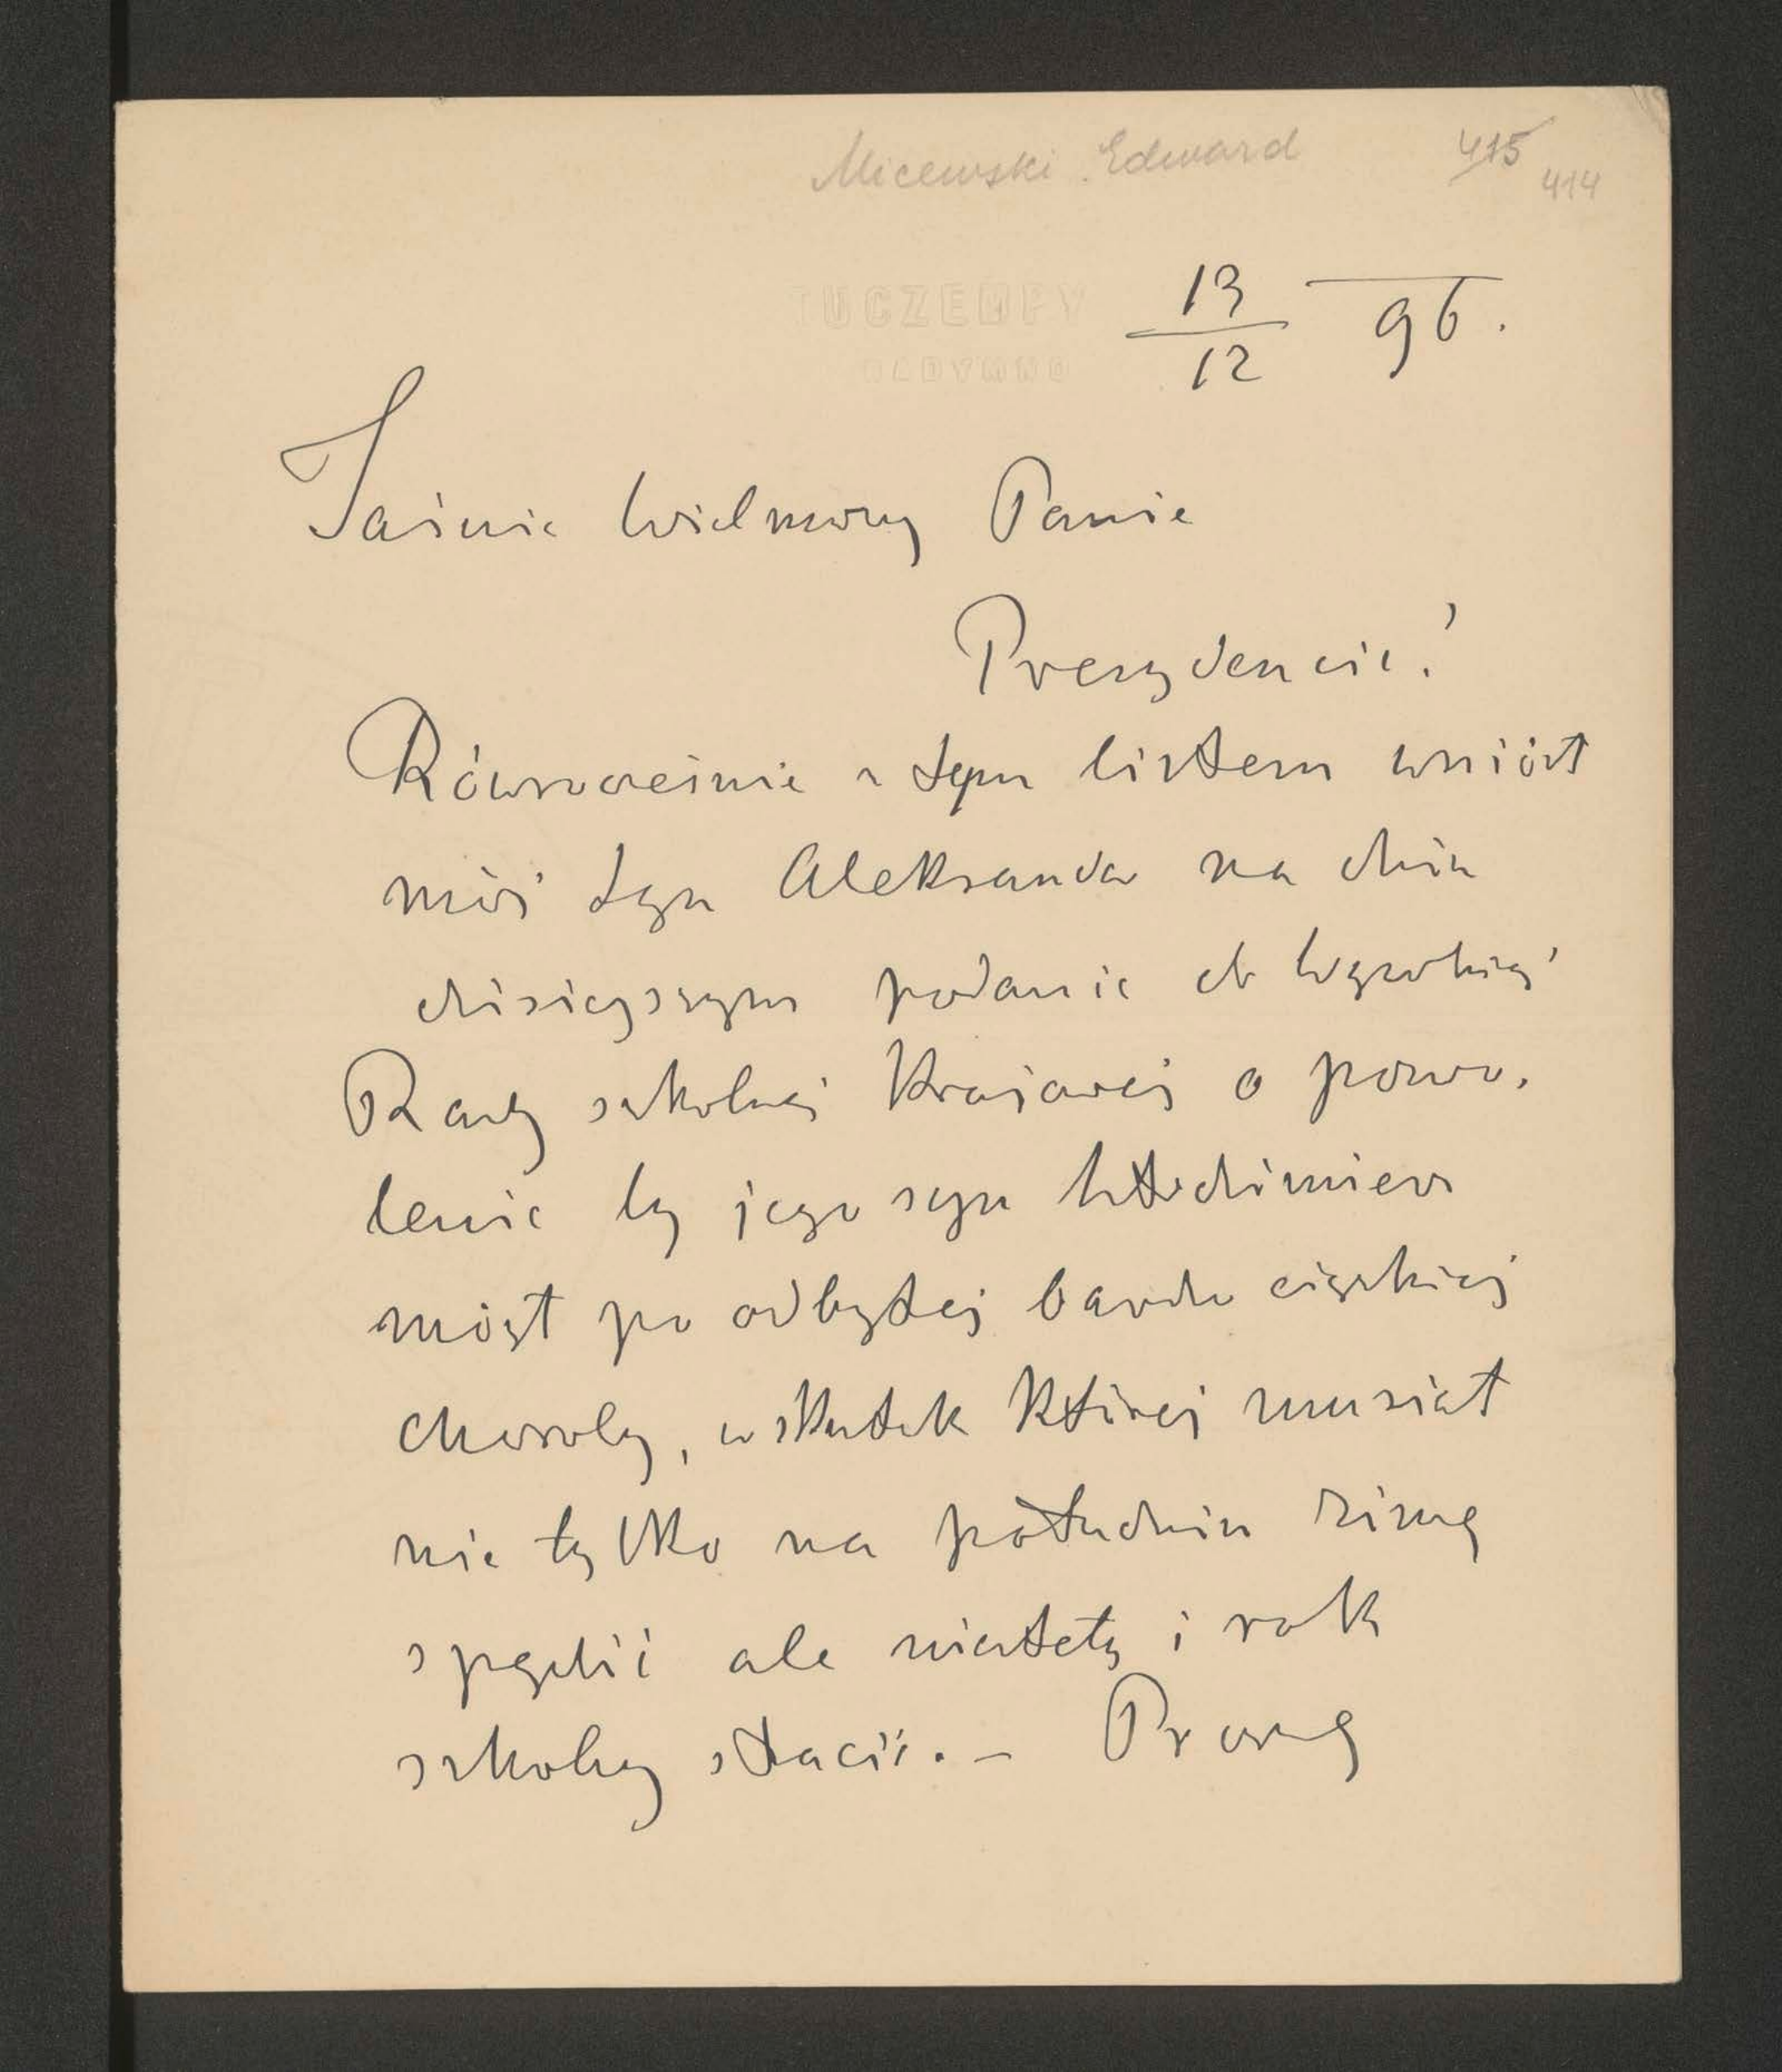 Micewski Edward 415 414
TUCZEMPY
RADYMNO
13/12 96.
Jaśnie Wielmożny Panie
Prezydencie!
Równocześnie z tym listem wniósł
mój syn Aleksander na dniu
dzisiejszym podanie do Wysokiej
Rady szkolnej Krajowej o pozwo-
lenie by jego syn Włodzimierz
mógł po odbytej bardzo ciężkiej
choroby, wskutek której musiał
nie tylko na południu zimę
spędzić ale niestety i rok
szkolny stracić. – Proszę